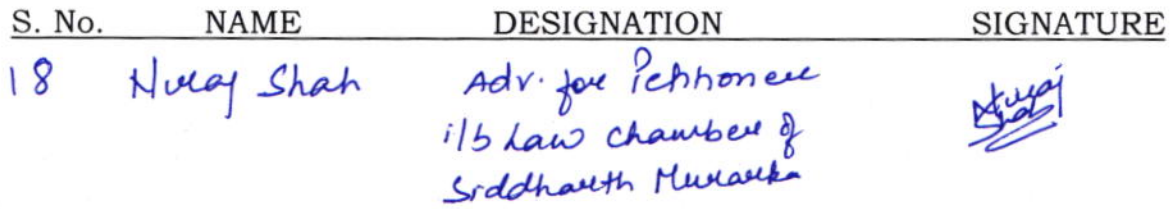 S. No. NAME DESIGNATION SIGNATURE
18 Niraj Shah Adv. for Petitioner
i/b Law Chamber of
Siddharth Murarka
Niraj
Shah